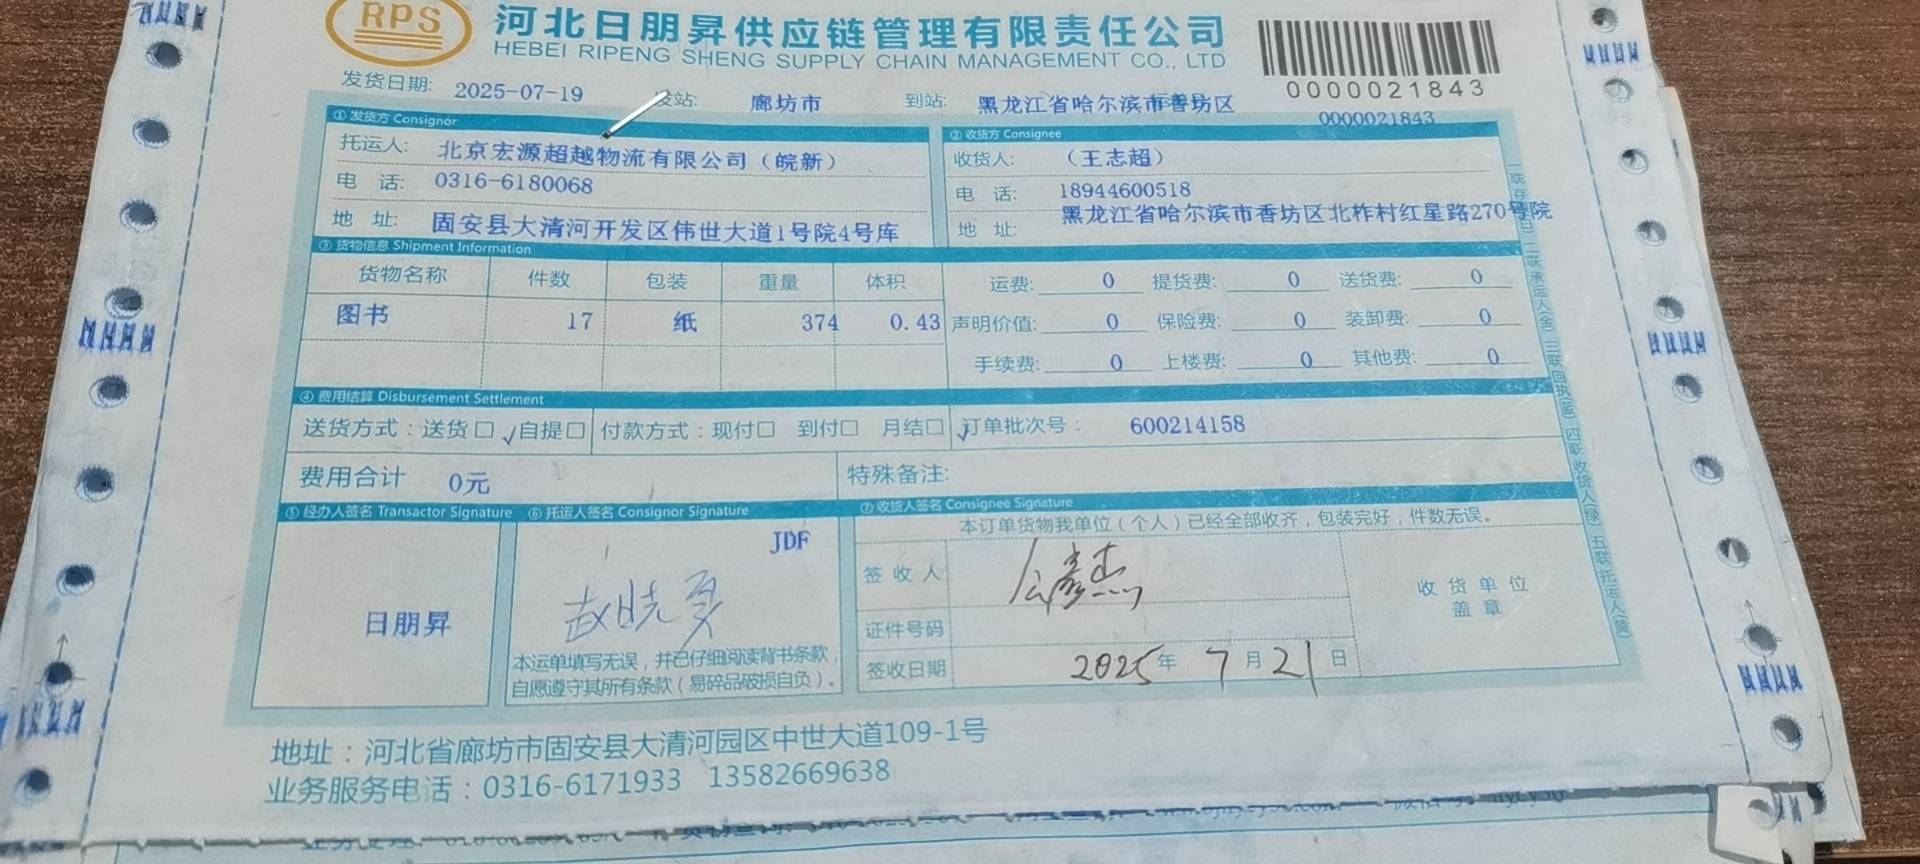 RPS
河北日朋昇供应链管理有限责任公司
HEBEI RIPENG SHENG SUPPLY CHAIN MANAGEMENT CO., LTD
0000021843
发货日期: 2025-07-19 站: 廊坊市 到站: 黑龙江省哈尔滨市香坊区
0000021843
① 发货方 Consignor
托运人: 北京宏源超越物流有限公司（皖新）
电 话: 0316-6180068
地 址: 固安县大清河开发区伟世大道1号院4号库
② 收货方 Consignee
收货人: （王志超）
电 话: 18944600518
地 址: 黑龙江省哈尔滨市香坊区北柞村红星路270号院
③ 货物信息 Shipment Information
货物名称 件数 包装 重量 体积
图书 17 纸 374 0.43
运费: 0 提货费: 0 送货费: 0
声明价值: 0 保险费: 0 装卸费: 0
手续费: 0 上楼费: 0 其他费: 0
④ 费用结算 Disbursement Settlement
送货方式：送货□ √自提□ 付款方式：现付□ 到付□ 月结□ √订单批次号： 600214158
费用合计 0元 特殊备注:
⑤ 经办人签名 Transactor Signature
日朋昇
⑥ 托运人签名 Consignor Signature
JDF
赵晓夏
本运单填写无误，并已仔细阅读背书条款，
自愿遵守其所有条款（易碎品破损自负）。
⑦ 收货人签名 Consignee Signature
本订单货物我单位（个人）已经全部收齐，包装完好，件数无误。
签 收 人
证件号码
签收日期 2025年 7月21日
收 货 单 位
盖 章
地址：河北省廊坊市固安县大清河园区中世大道109-1号
业务服务电话：0316-6171933 13582669638